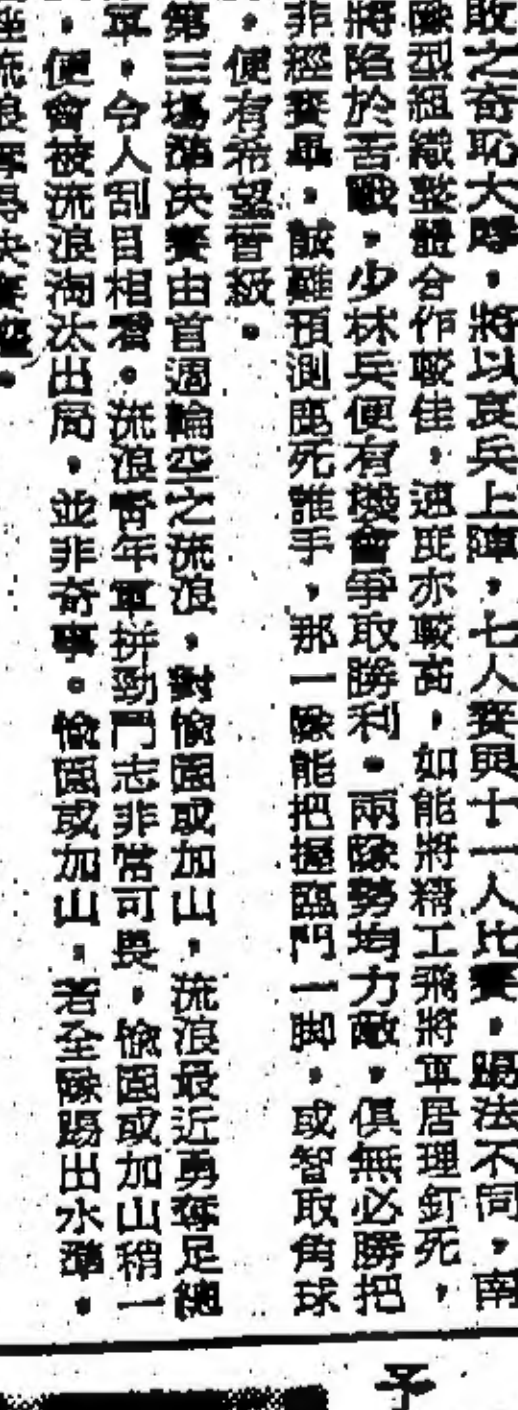 敗之奇恥大辱，將以哀兵上陣，七人賽與十一人比賽，踢法不同，南
隊型組織整體合作較佳，速度亦較高，如能將精工飛將軍居理釘死，
將陷於苦戰，少林兵便有機會爭取勝利。兩隊勢均力敵，俱無必勝把
非經賽畢，誠難預測鹿死誰手，那一隊能把握臨門一脚，或智取角球
，便有希望晉級。
第三場準決賽由首週輪空之流浪，對愉園或加山，流浪最近勇奪足總
軍，令人刮目相看。流浪青年軍拼勁鬥志非常可畏，愉園或加山稍一
，便會被流浪淘汰出局，並非奇事。愉園或加山，若全隊踢出水準，
流浪奪得決賽
予